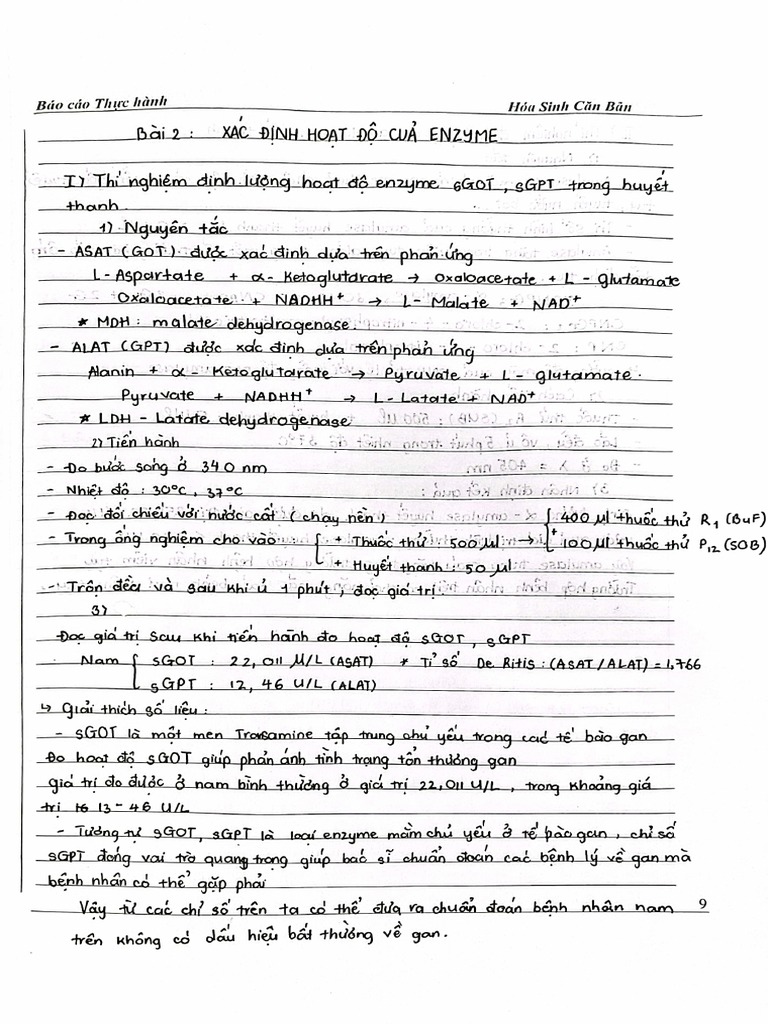 Báo cáo Thực hành Hóa Sinh Căn Bản
Bài 2 : XÁC ĐỊNH HOẠT ĐỘ CUẢ ENZYME
I) Thí nghiệm định lượng hoạt độ enzyme sGOT , sGPT trong huyết
thanh.
1) Nguyên tắc
- ASAT (GOT) được xác định dựa trên phản ứng
L-Aspartate + α-Ketoglutarate → Oxaloacetate + L-glutamate
Oxaloacetate + NADHH⁺ → L-Malate + NAD⁺
* MDH : malate dehydrogenase.
- ALAT (GPT) được xác định dựa trên phản ứng
Alanin + α-Ketoglutarate → Pyruvate + L-glutamate.
Pyruvate + NADHH⁺ → L-Latate + NAD⁺
* LDH - Latate dehydrogenase
2) Tiến hành
- Đo bước sóng ở 340 nm
- Nhiệt độ : 30°C , 37°C
- Đọc đối chiếu với nước cất ( chạy nền )
- Trong ống nghiệm cho vào : { + Thuốc thử : 500 µl → { 400 µl thuốc thử R₁ (BuF)
+ 100 µl thuốc thử P₁₂ (SOB)
+ Huyết thanh : 50 µl
- Trộn đều và sau khi ủ 1 phút , đọc giá trị
3)
Đọc giá trị sau khi tiến hành đo hoạt độ sGOT , sGPT
Nam { sGOT : 22,011 U/L (ASAT) * Tỉ số De Ritis : (ASAT/ALAT) = 1,766
sGPT : 12,46 U/L (ALAT)
↳ Giải thích số liệu :
- sGOT là một men Transamine tập trung chủ yếu trong các tế bào gan
Đo hoạt độ sGOT giúp phản ánh tình trạng tổn thương gan
giá trị đo được ở nam bình thường ở giá trị 22,011 U/L , trong khoảng giá
trị 13-46 U/L
- Tương tự sGOT, sGPT là loại enzyme nằm chủ yếu ở tế bào gan , chỉ số
sGPT đóng vai trò quang trọng giúp bác sĩ chuẩn đoán các bệnh lý về gan mà
bệnh nhân có thể gặp phải
Vậy từ các chỉ số trên ta có thể đưa ra chuẩn đoán bệnh nhân nam
trên không có dấu hiệu bất thường về gan.
9